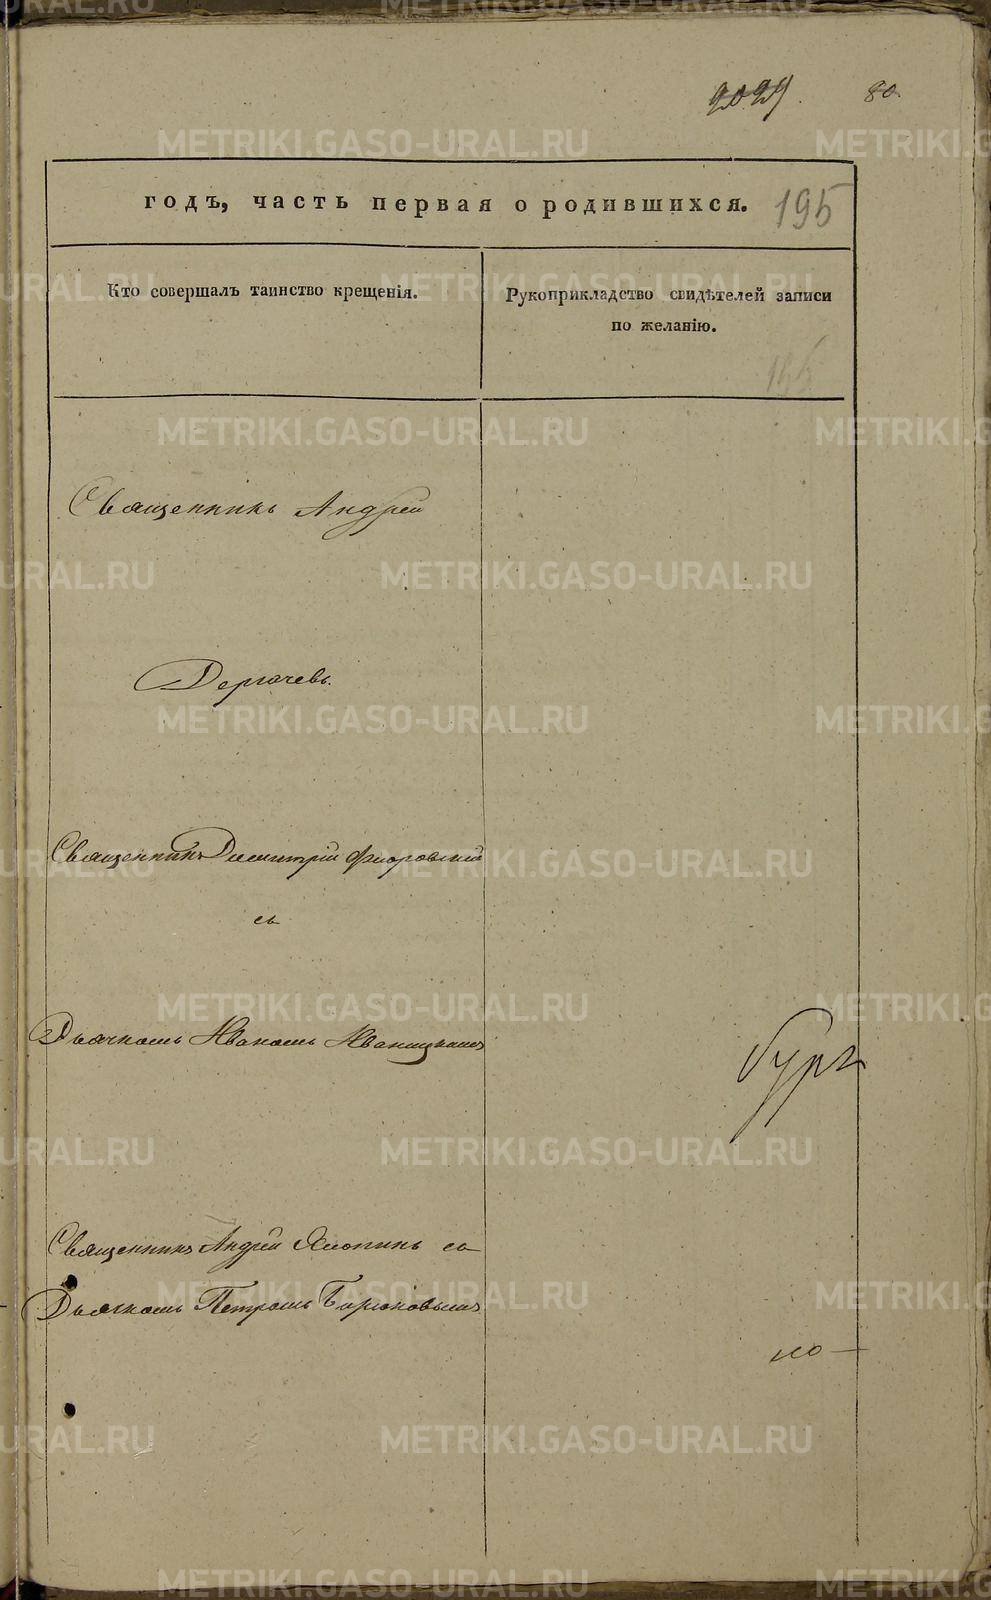 80.
годъ, часть первая о родившихся. 195
Кто совершалъ таинство крещенія.
Рукоприкладство свидѣтелей записи
по желанію.
195
Священникъ Андрей
Дергачевъ.
Священникъ Димитрій Флоровскій
съ
Дьячкомъ Иваномъ Иваницкимъ
бург
Священникъ Андрей Хлопинъ съ
Дьячкомъ Петромъ Бирюковымъ
METRIKI.GASO-URAL.RU